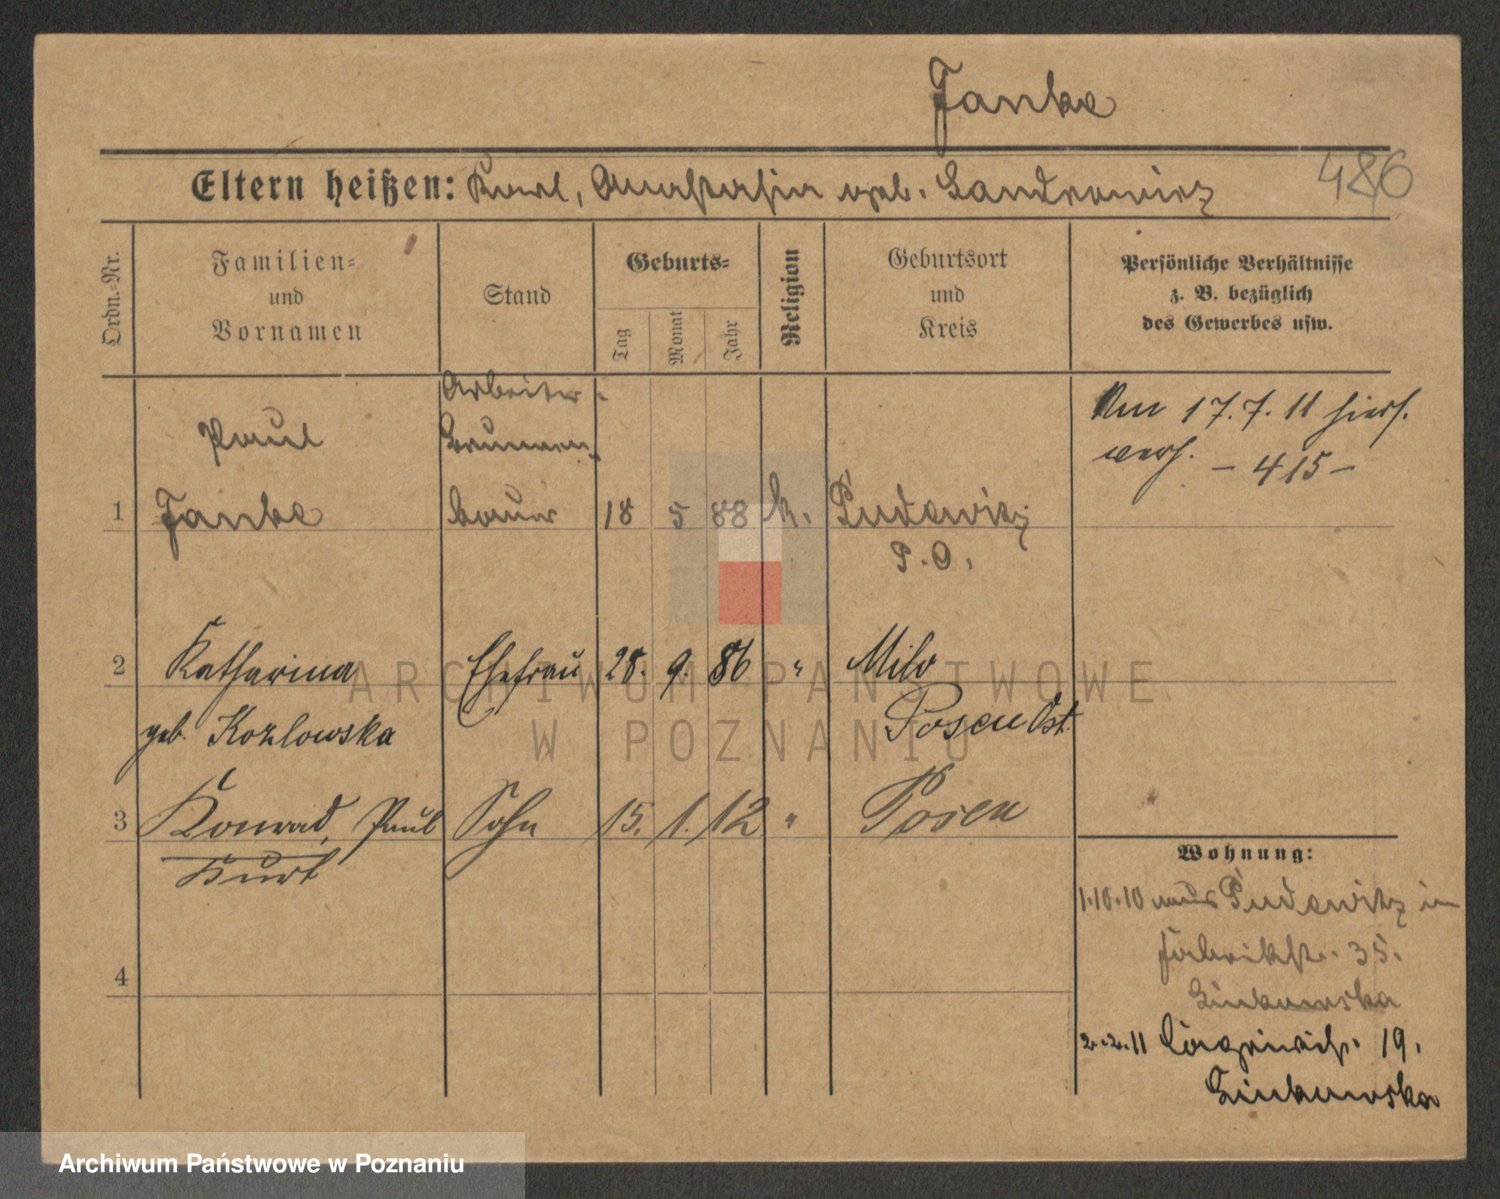 Janke
Eltern heißen: Karl, Anastasia geb. Landrowicz
486
Ordn.-Nr.
Familien-
und
Vornamen
Stand
Geburts-
Tag
Monat
Jahr
Religion
Geburtsort
und
Kreis
Persönliche Verhältnisse
z. B. bezüglich
des Gewerbes usw.
Arbeiter
Paul
Brunnen-
1 Janke bauer 18 5 88 k. Pudewitz
P. O.
Am 17. 7. 11 hier
verh. - 415 -
2 Katharina Ehefrau 28. 9. 86 " Milo
geb. Kozlowska Posen Ost.
3 Konrad, Paul Sohn 15. 1. 12 " Posen
Kurt
4
Wohnung:
1.10.10 aus Pudewitz in
Fabrikstr. 35.
2.2.11 19.
ARCHIWUM PAŃSTWOWE
W POZNANIU
Archiwum Państwowe w Poznaniu